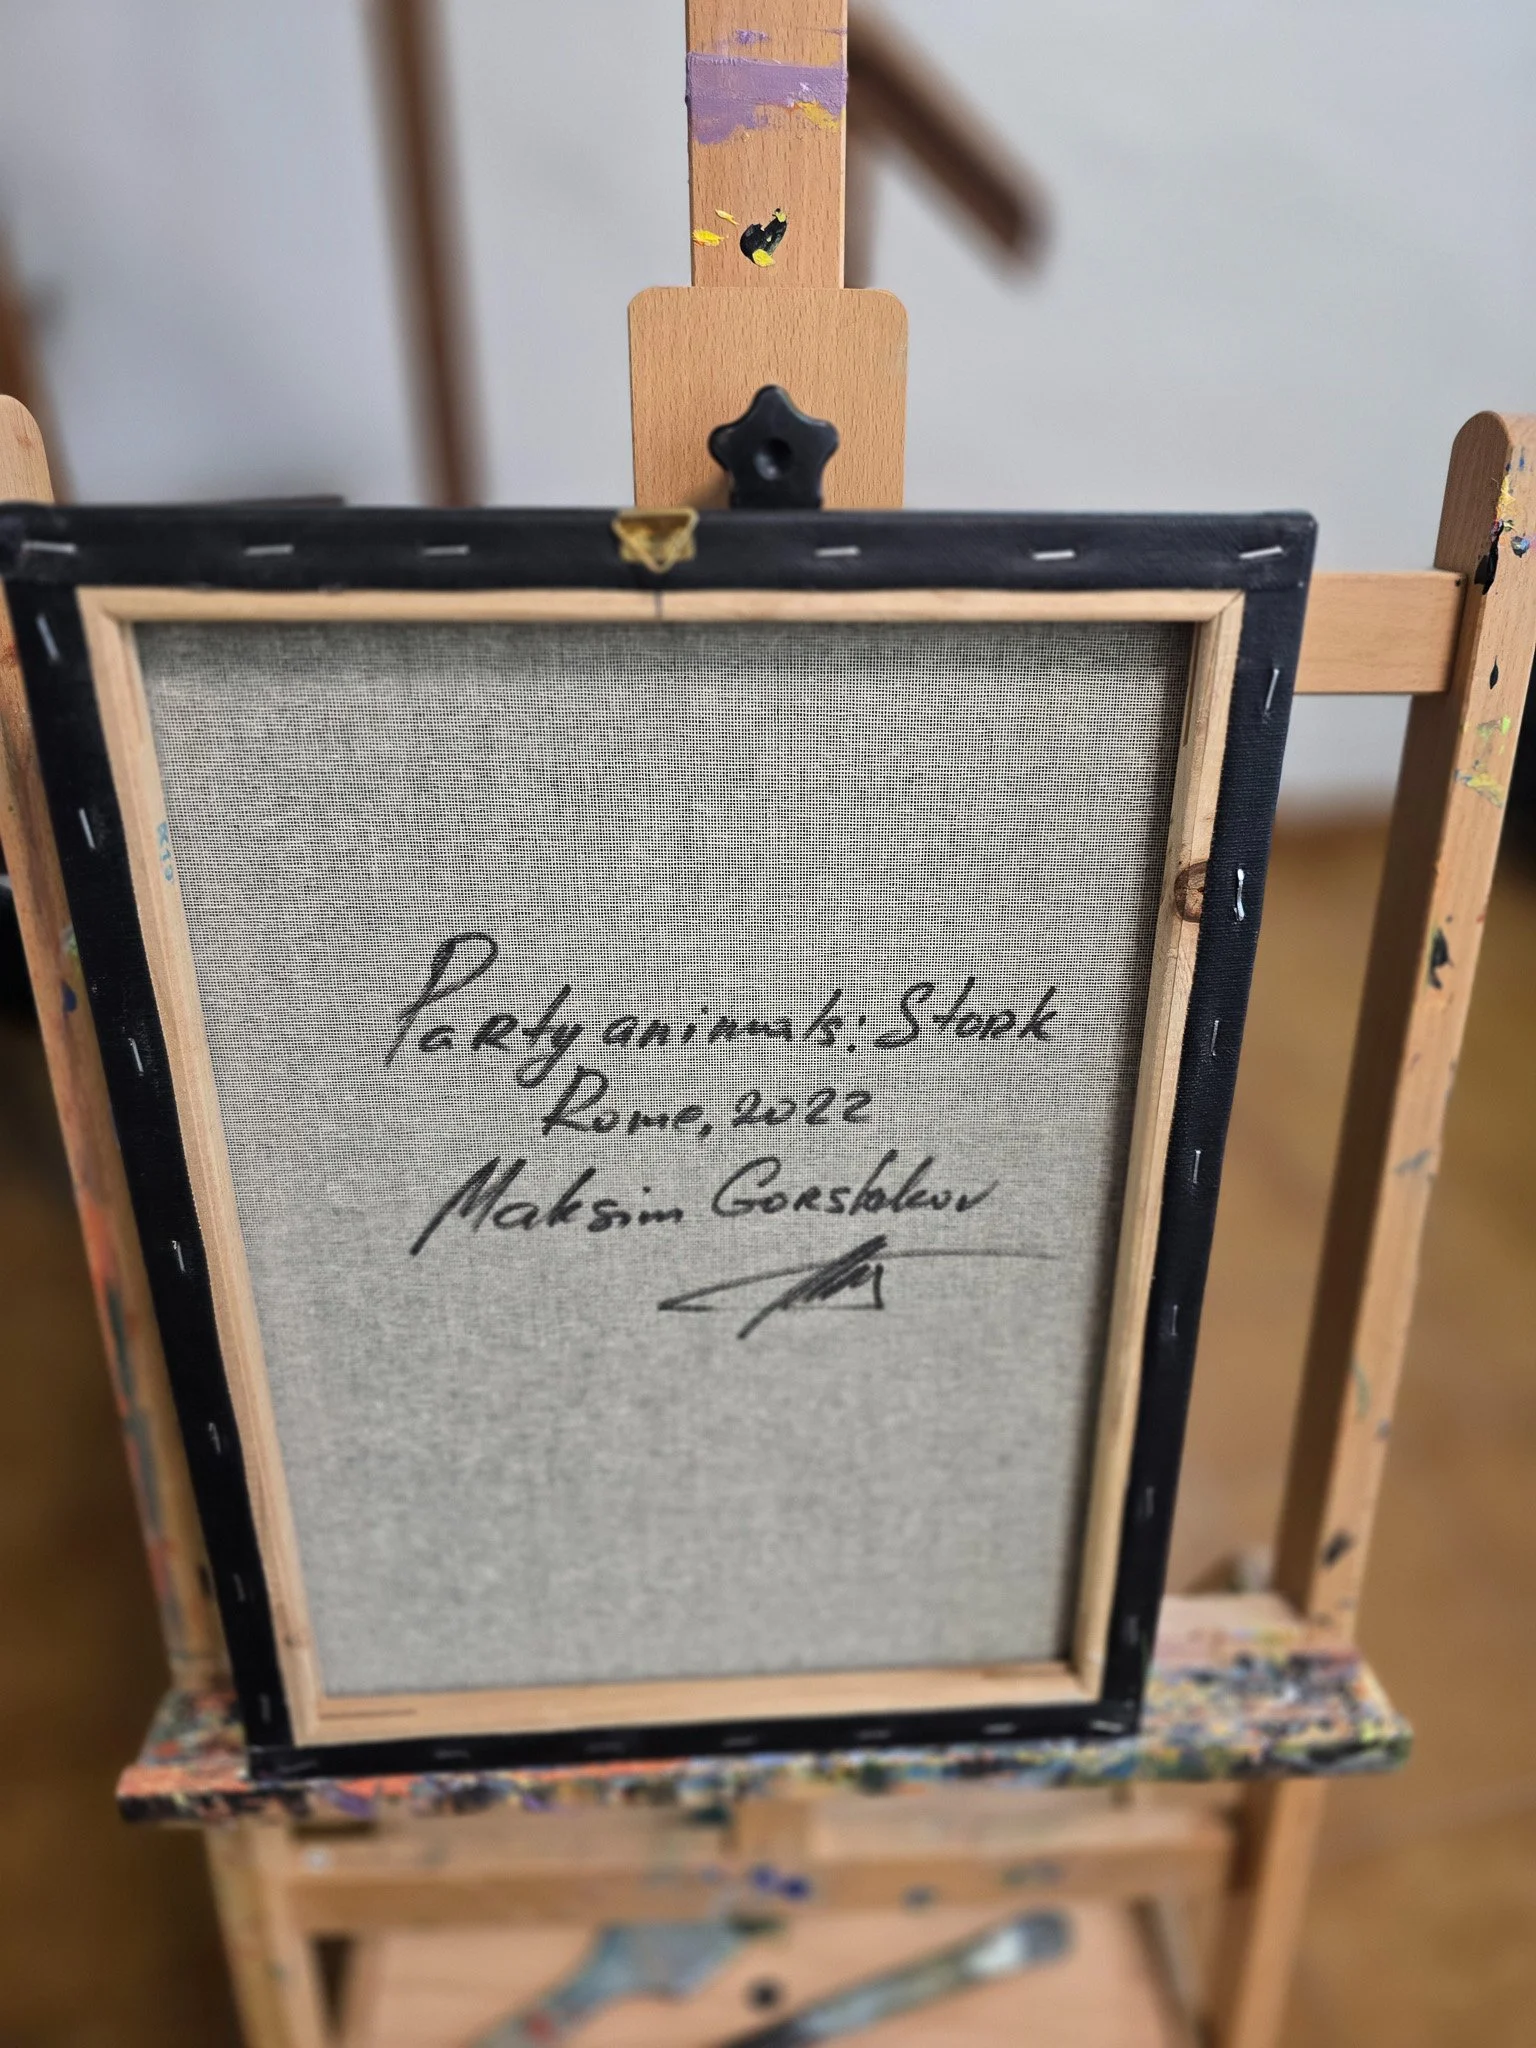 Party animals: Stork
Rome, 2022
Maksim Gorshkov